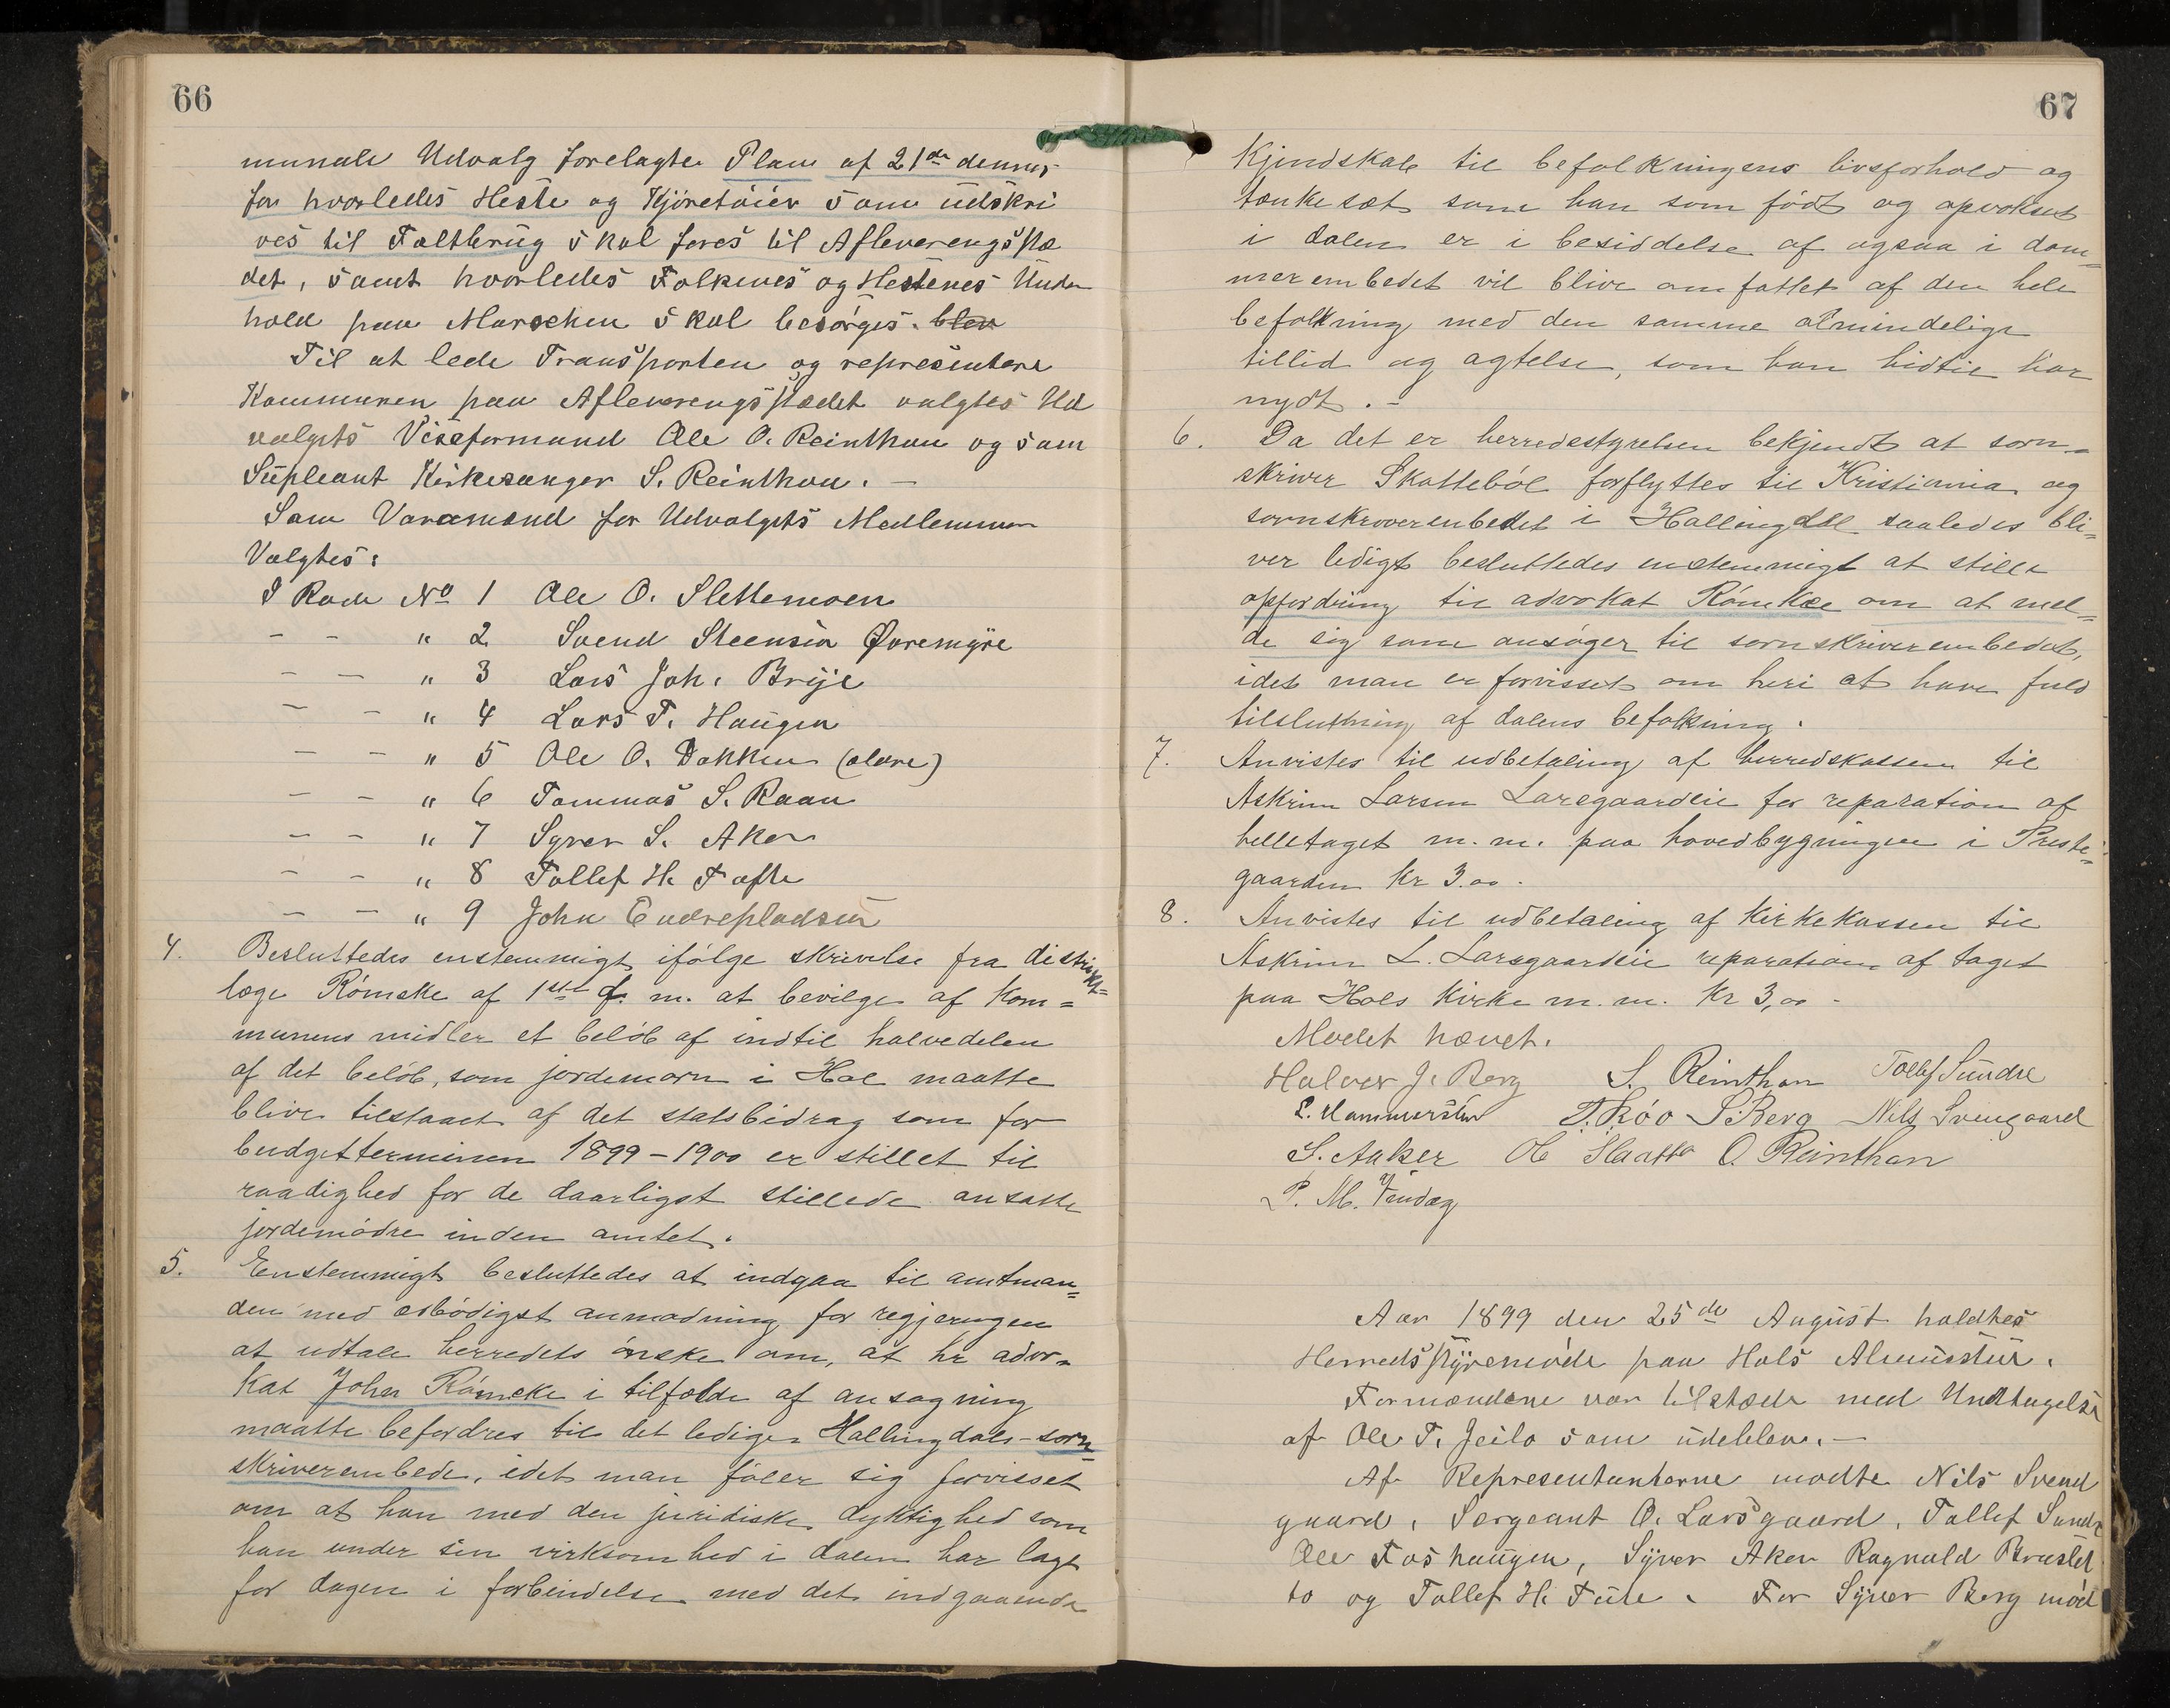 66
munale Udvalg forelagte Plan af 21de dennes
for hvorledes Heste og Kjøretøier som udskri
ves til Feltbrug skal føres til Afleverengsstæ
det, samt hvorledes Folkenes og Hestenes Under
hold paa Marschen skal besørges. blev
Til at lede Transporten og representere
Kommunen paa Afleverengsstædet valgtes Ud
valgets Viseformand Ole O. Reinthon og som
Supleant Kirkesanger S. Reinthon. –
Som Varamænd for Udvalgets Medlemmer
Valgtes:
I Rode No 1 Ole O. Slettemoen
– – " 2 Svend Steensen Øvremyre
– – " 3 Lars Joh. Brye
– – " 4 Lars T. Haugen
– – " 5 Ole O. Dokken
– – " 6 Tommas S. Raan
– – " 7 Syver S. Aker
– – " 8 Tollef H. Tofte
– – " 9 John Endrepladsen
4. Besluttedes enstemmigt ifølge skrivelse fra distrikt=
læge Rømcke af 1ste d. m. at bevilge af kom=
munens midler et beløb af indtil halvedelen
af det beløb, som jordemoren i Hol maatte
blive tilstaaet af det statsbidrag som for
budgetterminen 1899–1900 er stillet til
raadighed for de daarligst stillede ansatte
jordemødre inden amtet.
5. Enstemmigt besluttedes at indgaa til amtman=
den med ærbødigst anmodning for regjeringen
at udtale herredets ønske om, at hr advo=
kat John Rømcke i tilfælde af ansøgning
maatte befordres til det ledige Hallingdals-sorn=
skriverembede, idet man føler sig forvisset
om at han med den juridiske dyktighed som
han under sin virksomhed i dalen har lagt
for dagen i forbindelse med det indgaaende
67
Kjendskab til befolkningens livsforhold og
tænkesæt som han som født og opvokset
i dalen er i besiddelse af ogsaa i dom=
merembedet vil blive omfattet af den hele
befolkning med den samme almindelige
tillid og agtelse, som han hidtil har
nydt. –
6. Da det er herredestyrelsen bekjendt at sorn=
skriver Skattebøl forflyttes til Kristiania og
sornskriverembedet i Hallingdal saaledes bli=
ver ledigt besluttedes enstemmigt at stille
opfordring til advokat Rømcke om at mel=
de sig som ansøger til sornskriverembedet,
idet man er forvisset om heri at have fuld
tilslutning af dalens befolkning.
7. Anvistes til udbetaling af herredskassen til
Askrim Larsen Larsgaardeie for reparation af
helletaget m.m. paa hovedbygningen i Preste=
gaarden Kr 3.00.
8. Anvistes til udbetaling af Kirkekassen til
Askrim L. Larsgaardeie reparation af taget
paa Hols Kirke m.m. Kr 3,00 –
Mødet hævet.
Halvor J. Berg S. Reinthon Tollef Sundre
L. Hammersbøn T. Roo S. Berg Nils Svengaard
S. Aaker O Slaatto O. Reinthon
P. M.
Aar 1899 den 25de August holdtes
Herredsstyremøde paa Hols Almusstue.
Formændene var tilstæde med Undtagelse
af Ole T. Jeilo som udeblev. –
Af Representanterne mødte Nils Svend
gaard, Sergeant O. Larsgaard, Tollef Sundre
Ole Foshaugen, Syver Aker Ragnald Bruslet
to og Tollef H. Tufte. For Syver Berg mød